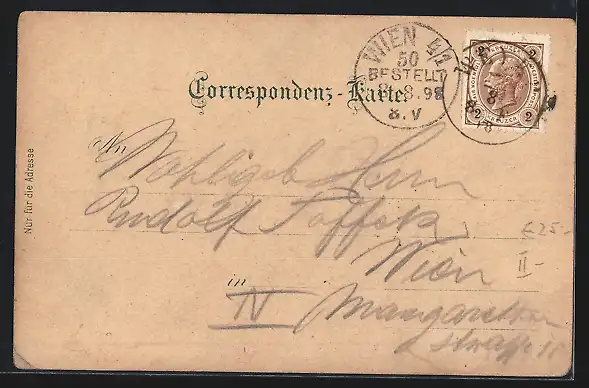 WIEN 4/1
50
BESTELLT
8. 8. 98
8. V
2 KREUZER 2
Correspondenz-Karte.
An
Wohlgeb Herrn
Rudolf
Wien
in
IV Margarethen
strasse 11
Nur für die Adresse
£25-
II-